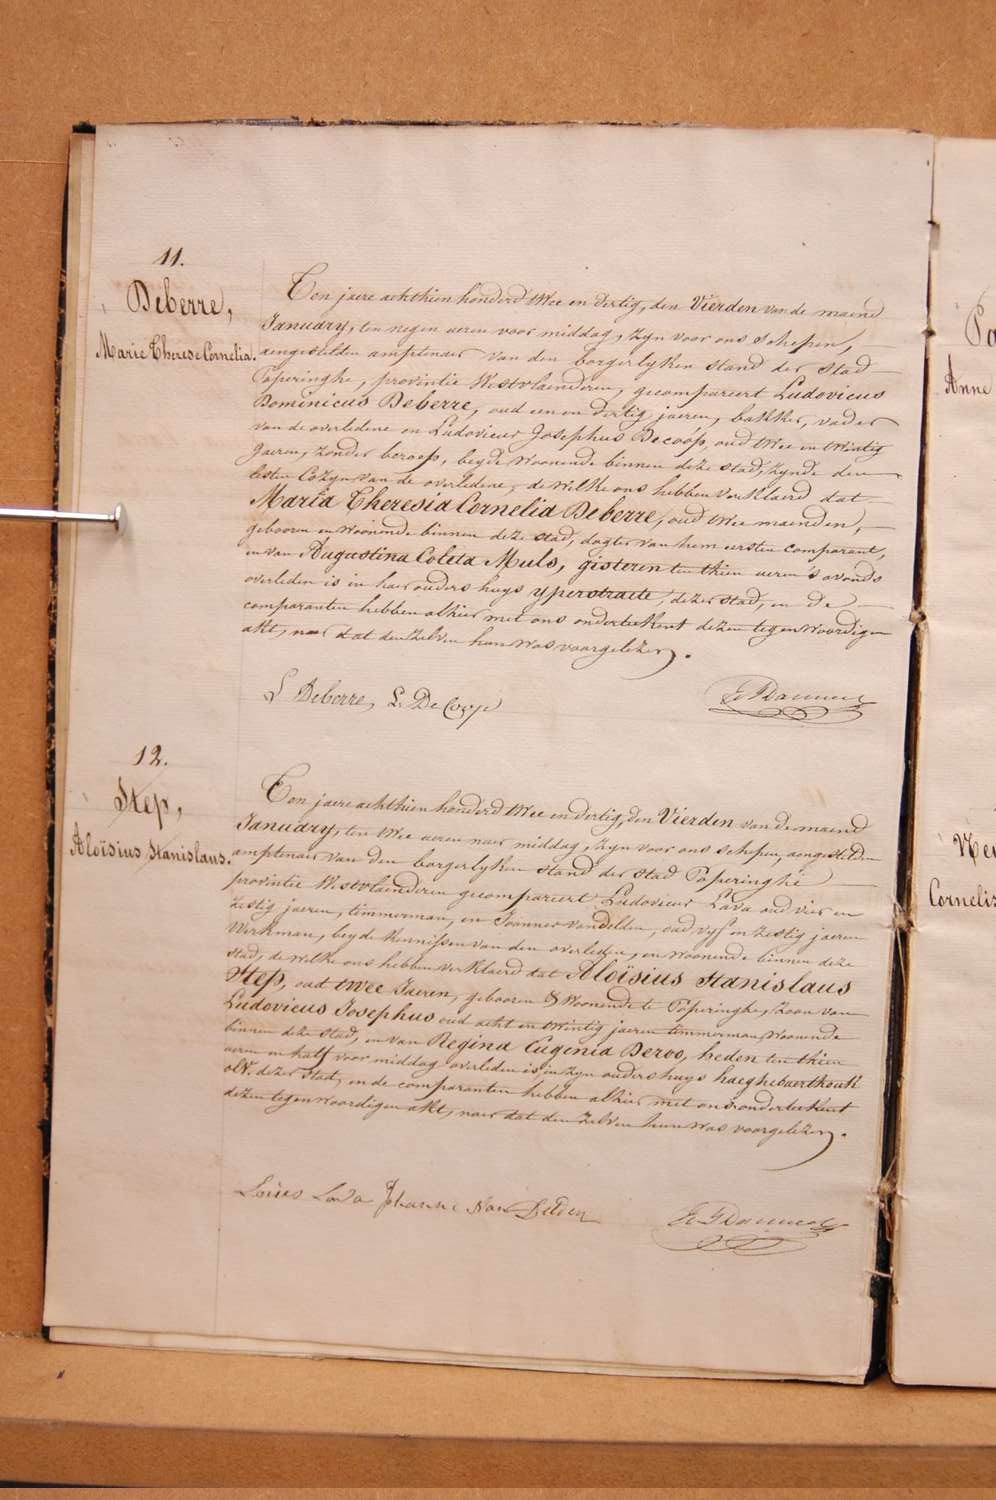 11.
Deberre,
Marie Therese Cornelia.
Ten jaere achthien honderd twee en dertig, den Vierden van de maend
January, ten negenueren voor middag, zyn voor ons schepen,
aengestelden amptenaer van den borgerlyken stand der stad
Poperinghe, provintie Westvlaenderen, gecompareert Ludovicus
Dominicus Deberre, oud een en dertig jaeren, bakker, vader
van de overledene en Ludovicus Josephus Decoóp, oud twee en twintig
jaeren, zonder beroep, beyde woonende binnen deze stad, zynde den
lesten Cozyn van de overledene, de welke ons hebben verklaerd dat
Maria Theresia Cornelia Deberre, oud twee maenden,
geboren en woonende binnen deze stad, dogter van hem eersten comparant,
en van Augustina Coleta Muls, gisteren ten thien ueren 's avonds
overleden is in haer ouders huys yperstraete, dezer stad, en de
comparanten hebben alhier met ons onderteekent dezen tegenwoordigen
akt, naer dat den zelven hun was voorgelezen.
L Deberre L. De
12.
Step,
Aloïsius Stanislaus.
Ten jaere achthien honderd twee en dertig, den Vierden van de maend
January, ten twee ueren naer middag, zyn voor ons schepen, aengestelden
amptenaer van den borgerlyken stand der stad Poperinghe
provintie Westvlaenderen gecompareert Ludovicus Lava oud vier en
zestig jaeren, timmerman, en Joannes Vandelden, oud vyf en zestig jaeren
Werkman, beyde kennissen van den overleden, en woonende binnen deze
stad, de welke ons hebben verklaerd dat Aloïsius Stanislaus
Step, oud twee Jaeren, geboren & woonende te Poperinghe, zoon van
Ludovicus Josephus oud acht en twintig jaeren timmerman woonende
binnen deze stad, en van Regina Eugenia Deroo, heden ten thien
ueren en half voor middag overleden is, in zyn ouders huys haeghebaerthouk
dezer stad, en de comparanten hebben alhier met ons onderteekent
dezen tegenwoordigen akt, naer dat den zelven hun was voorgelezen.
Louies Lava Johannes Van Delden
Anne